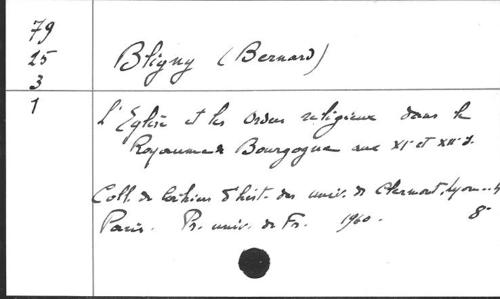 79
25
3
1
Bligny (Bernard)
L'Eglise et les ordres religieux dans le
Royaume de Bourgogne aux XIe et XIIe s.
Coll. de Cahiers d'hist. des univ. de Clermont, Lyon..
Paris. Pr. univ. de Fr. 1960. 8°